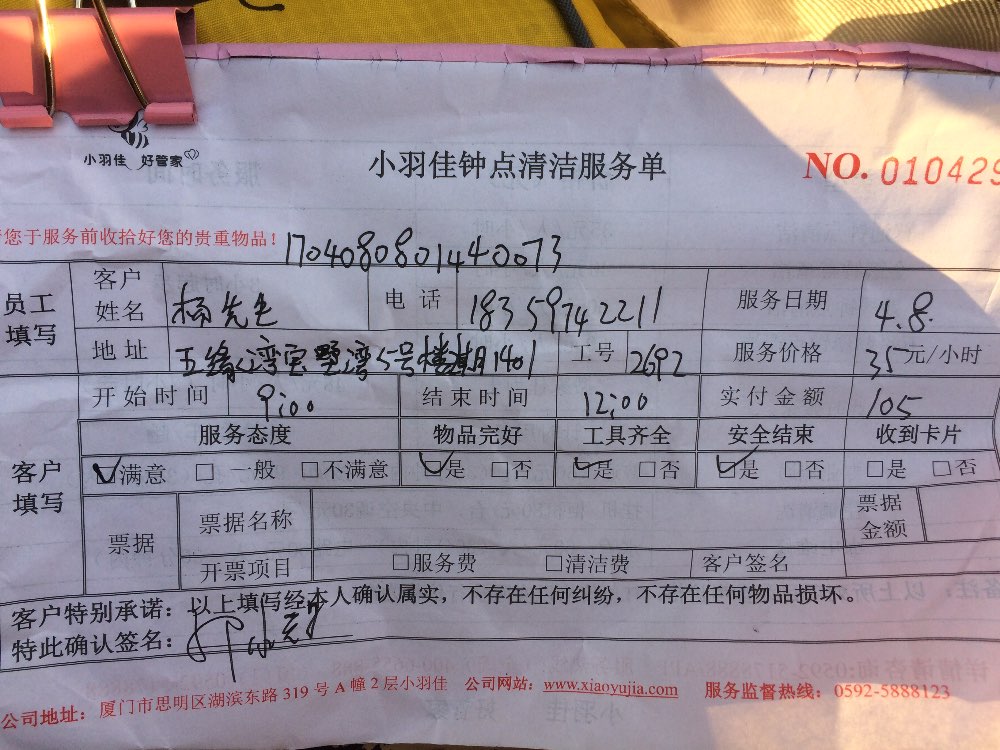 小羽佳 好管家
小羽佳钟点清洁服务单
NO. 010429
您于服务前收拾好您的贵重物品！
1704080801440073
员工填写 客户姓名 杨先生 电话 18359742211 服务日期 4.8.
地址 五缘湾宝墅湾5号楼1401 工号 2692 服务价格 35元/小时
开始时间 9:00 结束时间 12:00 实付金额 105
客户填写 服务态度 物品完好 工具齐全 安全结束 收到卡片
☑满意 □一般 □不满意 ☑是 □否 ☑是 □否 ☑是 □否 □是 □否
票据 票据名称 票据金额
开票项目 □服务费 □清洁费 客户签名
客户特别承诺：以上填写经本人确认属实，不存在任何纠纷，不存在任何物品损坏。
特此确认签名：
公司地址：厦门市思明区湖滨东路319号A幢2层小羽佳 公司网站：www.xiaoyujia.com 服务监督热线：0592-5888123